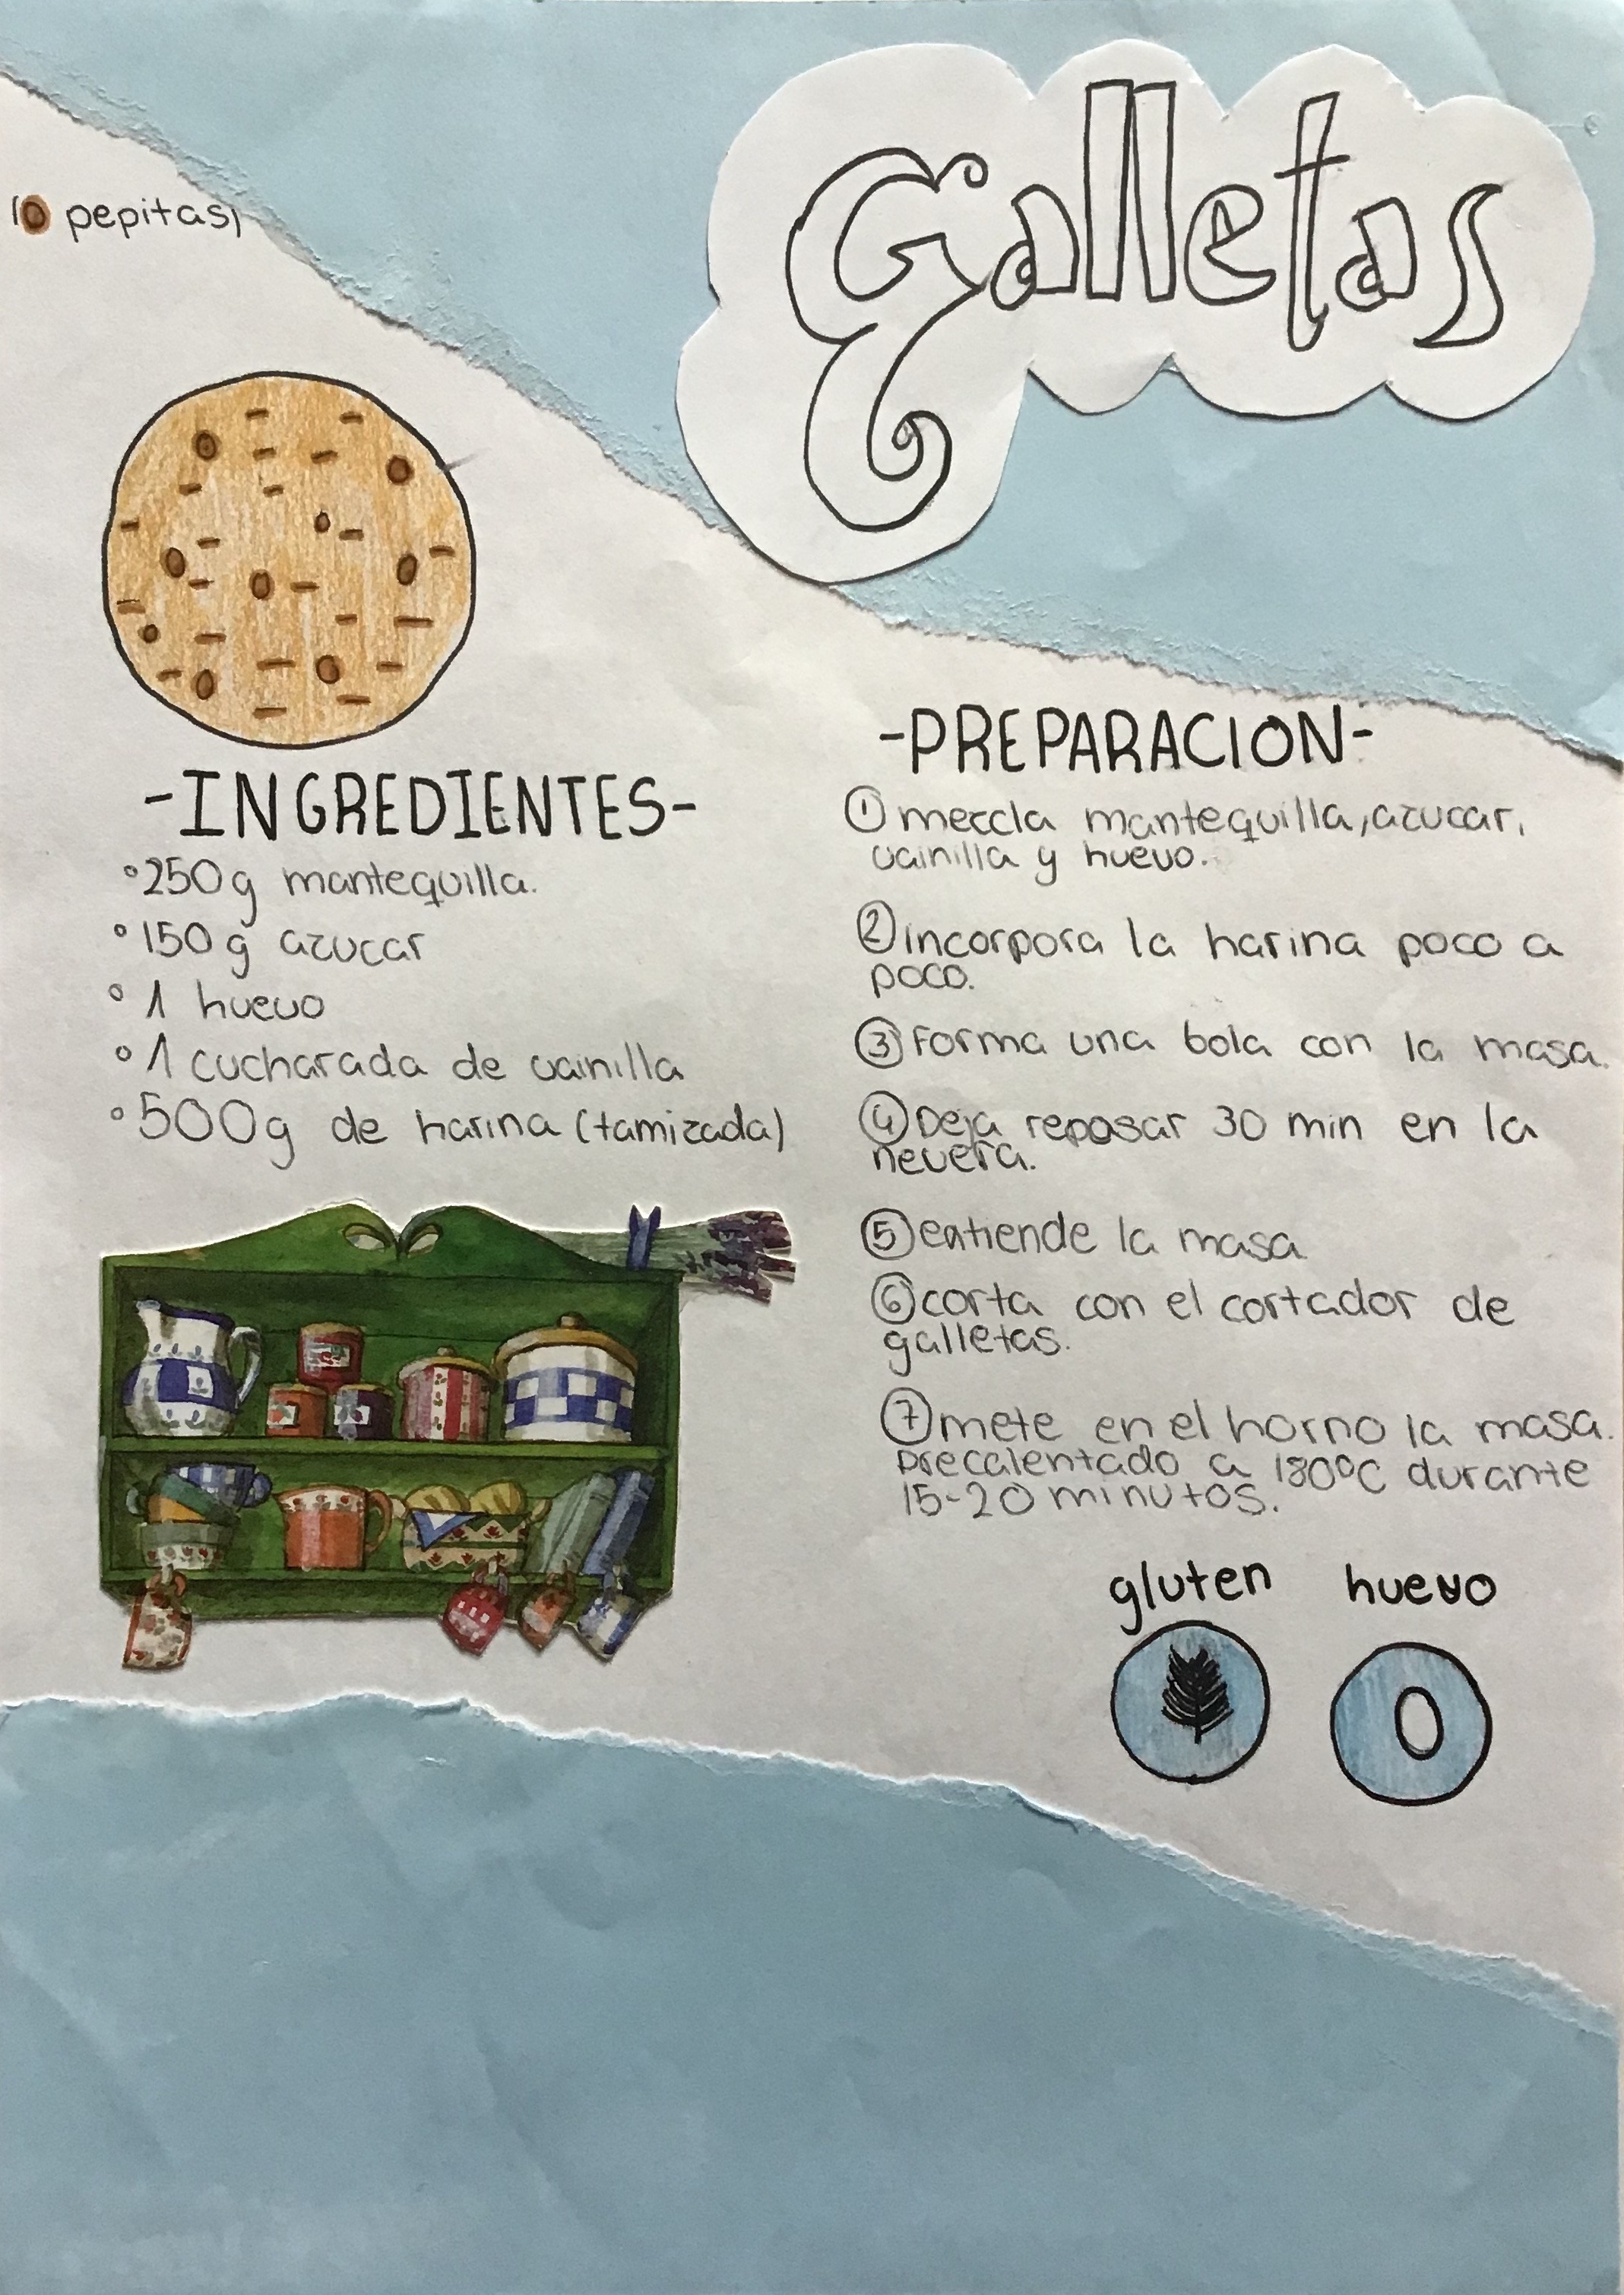 Galletas
10 pepitas
-INGREDIENTES-
°250g mantequilla.
°150g azucar
°1 huevo
°1 cucharada de vainilla
°500g de harina (tamizada)
-PREPARACION-
① mezcla mantequilla, azucar,
vainilla y huevo.
② incorpora la harina poco a
poco.
③ Forma una bola con la masa.
④ Deja reposar 30 min en la
nevera.
⑤ extiende la masa
⑥ corta con el cortador de
galletas.
⑦ mete en el horno la masa.
precalentado a 180°C durante
15-20 minutos.
gluten huevo